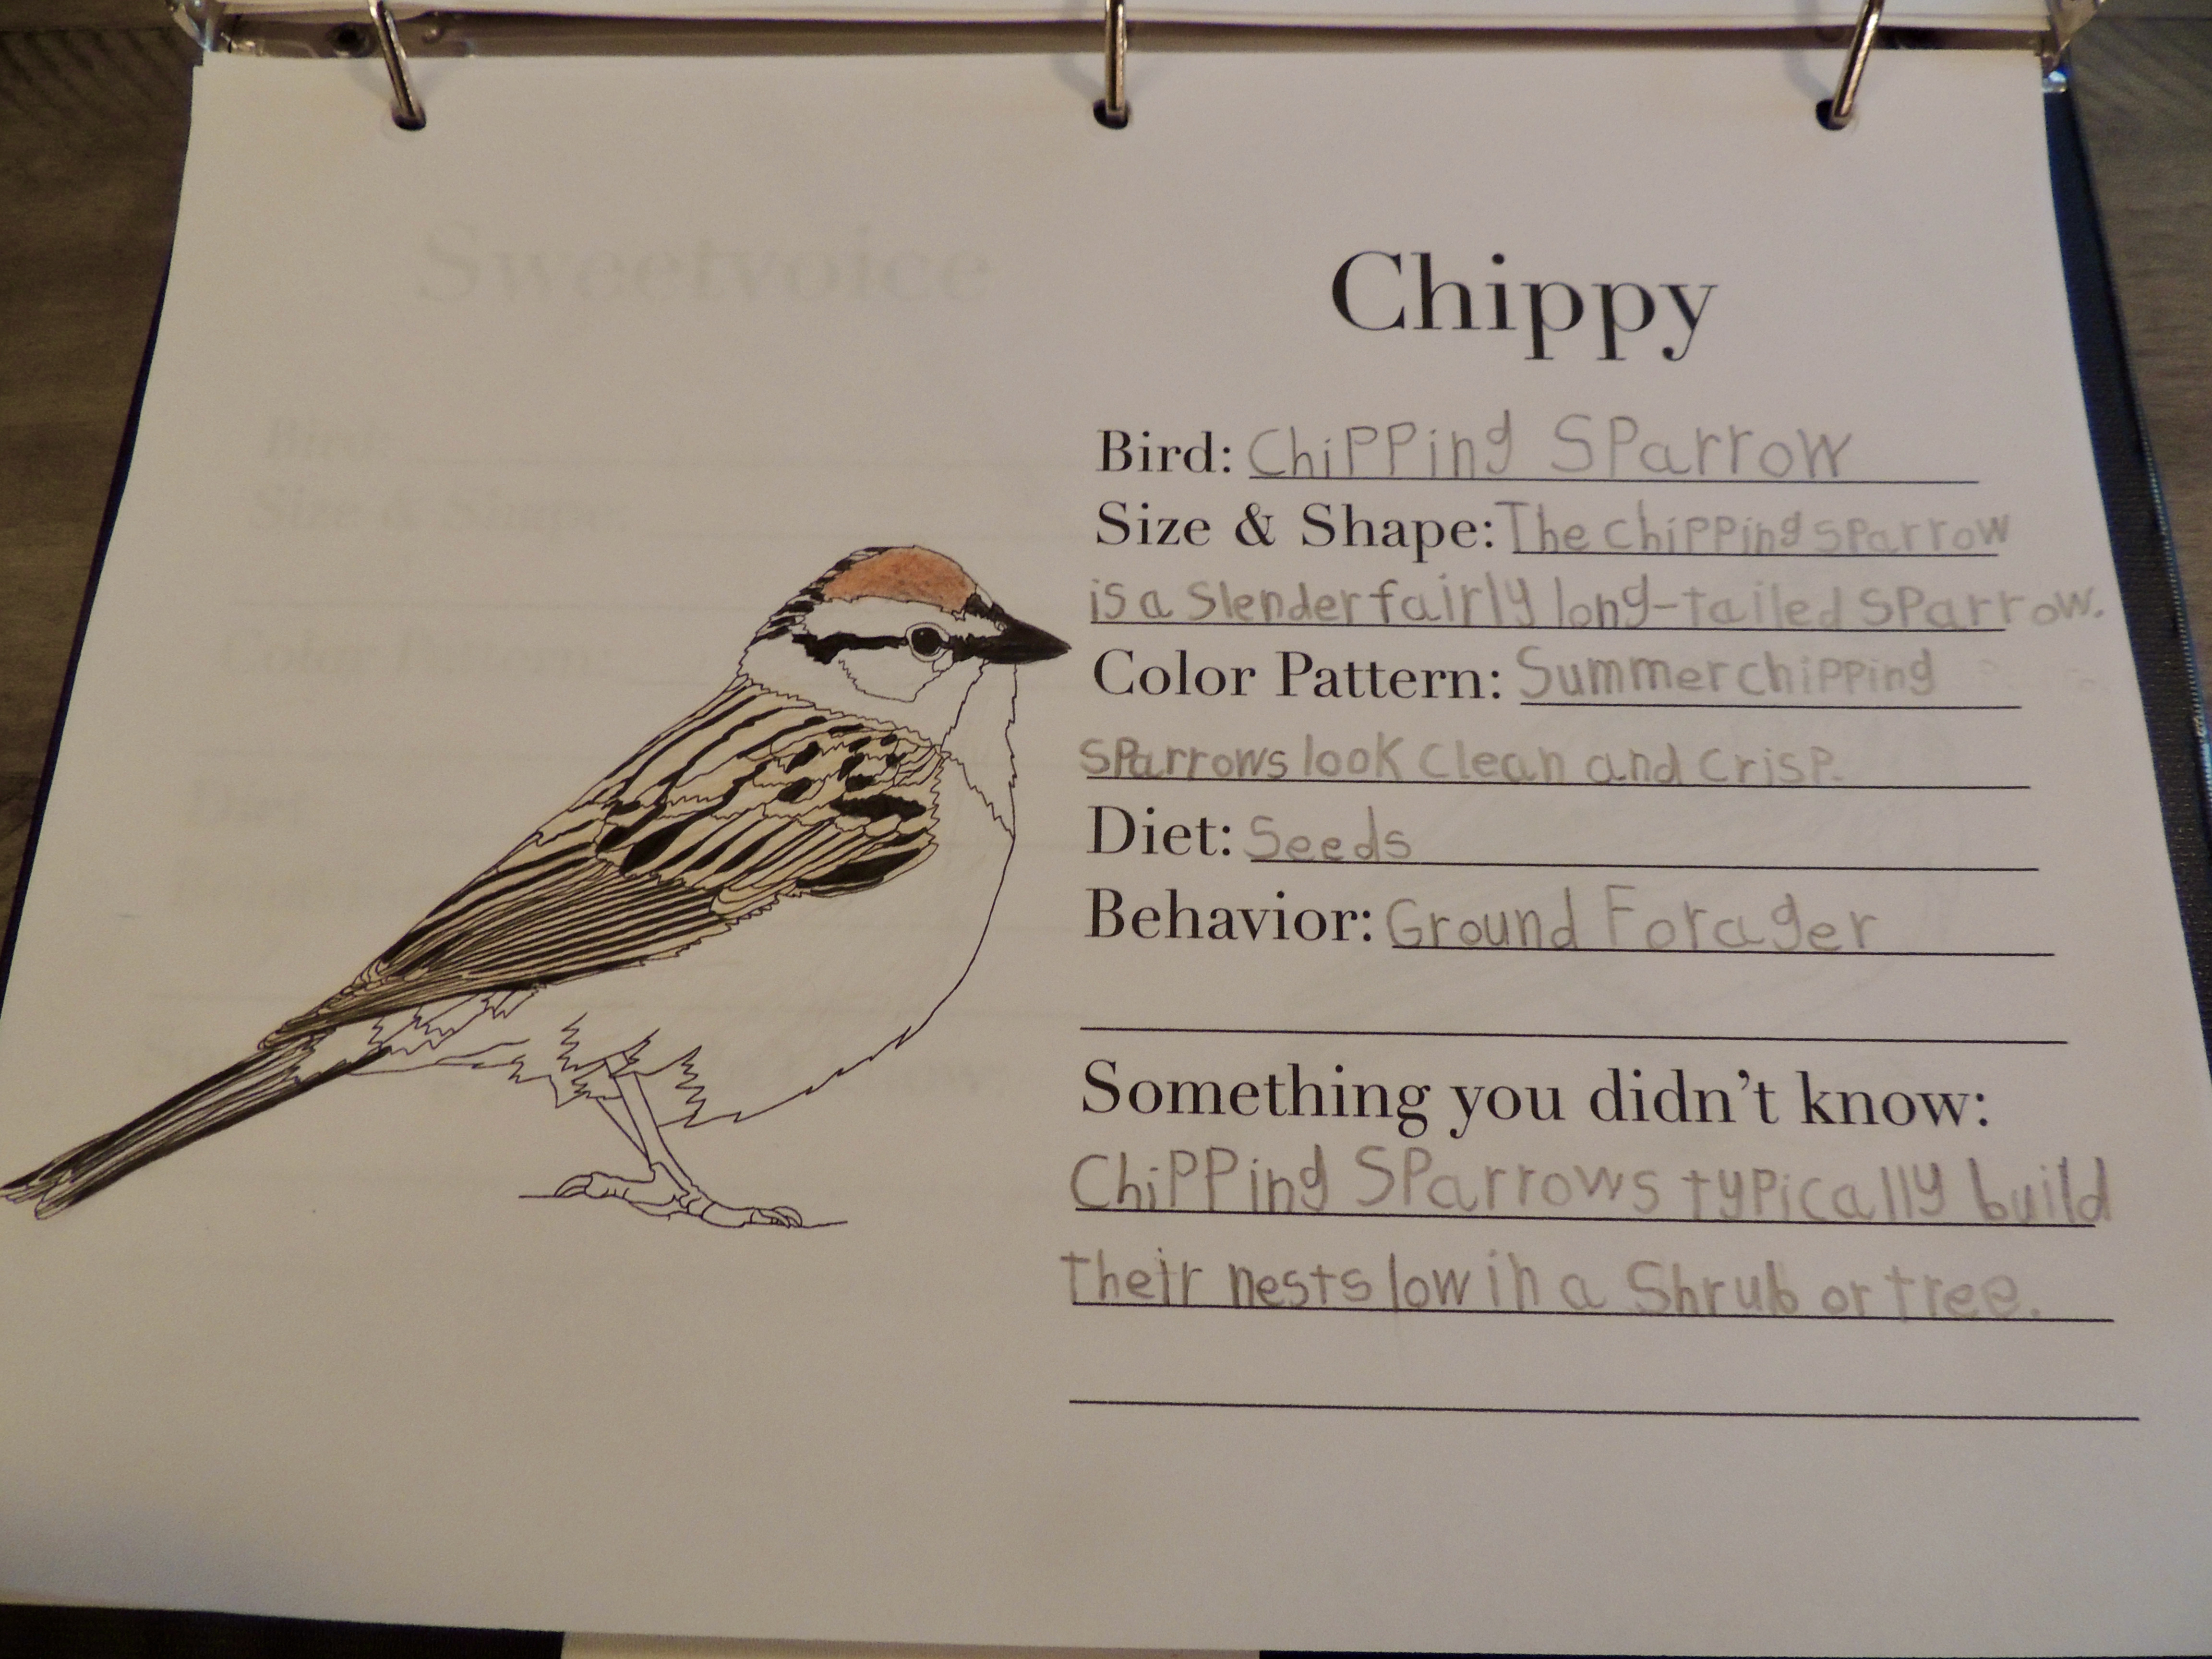 Sweetvoice
Chippy
Bird:
Size & Shape:
Color Pattern:
Bird: Chipping Sparrow
Size & Shape: The chipping sparrow
is a slender fairly long-tailed sparrow.
Color Pattern: Summer chipping
sparrows look clean and crisp.
Diet: Seeds
Behavior: Ground Forager
Something you didn't know:
Chipping Sparrows typically build
their nests low in a Shrub or tree.